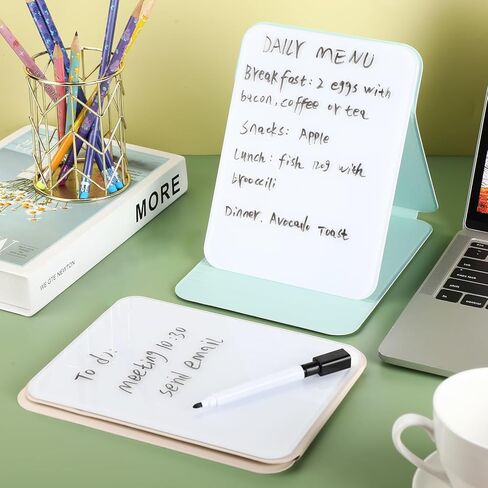 DAILY MENU
Breakfast: 2 eggs with
bacon, coffee or tea
Snacks: Apple
Lunch: fish 120g with
broccili
Dinner. Avocado Toast
MORE
WE GTE NEWTON
To do:
meeting 10:30
send email